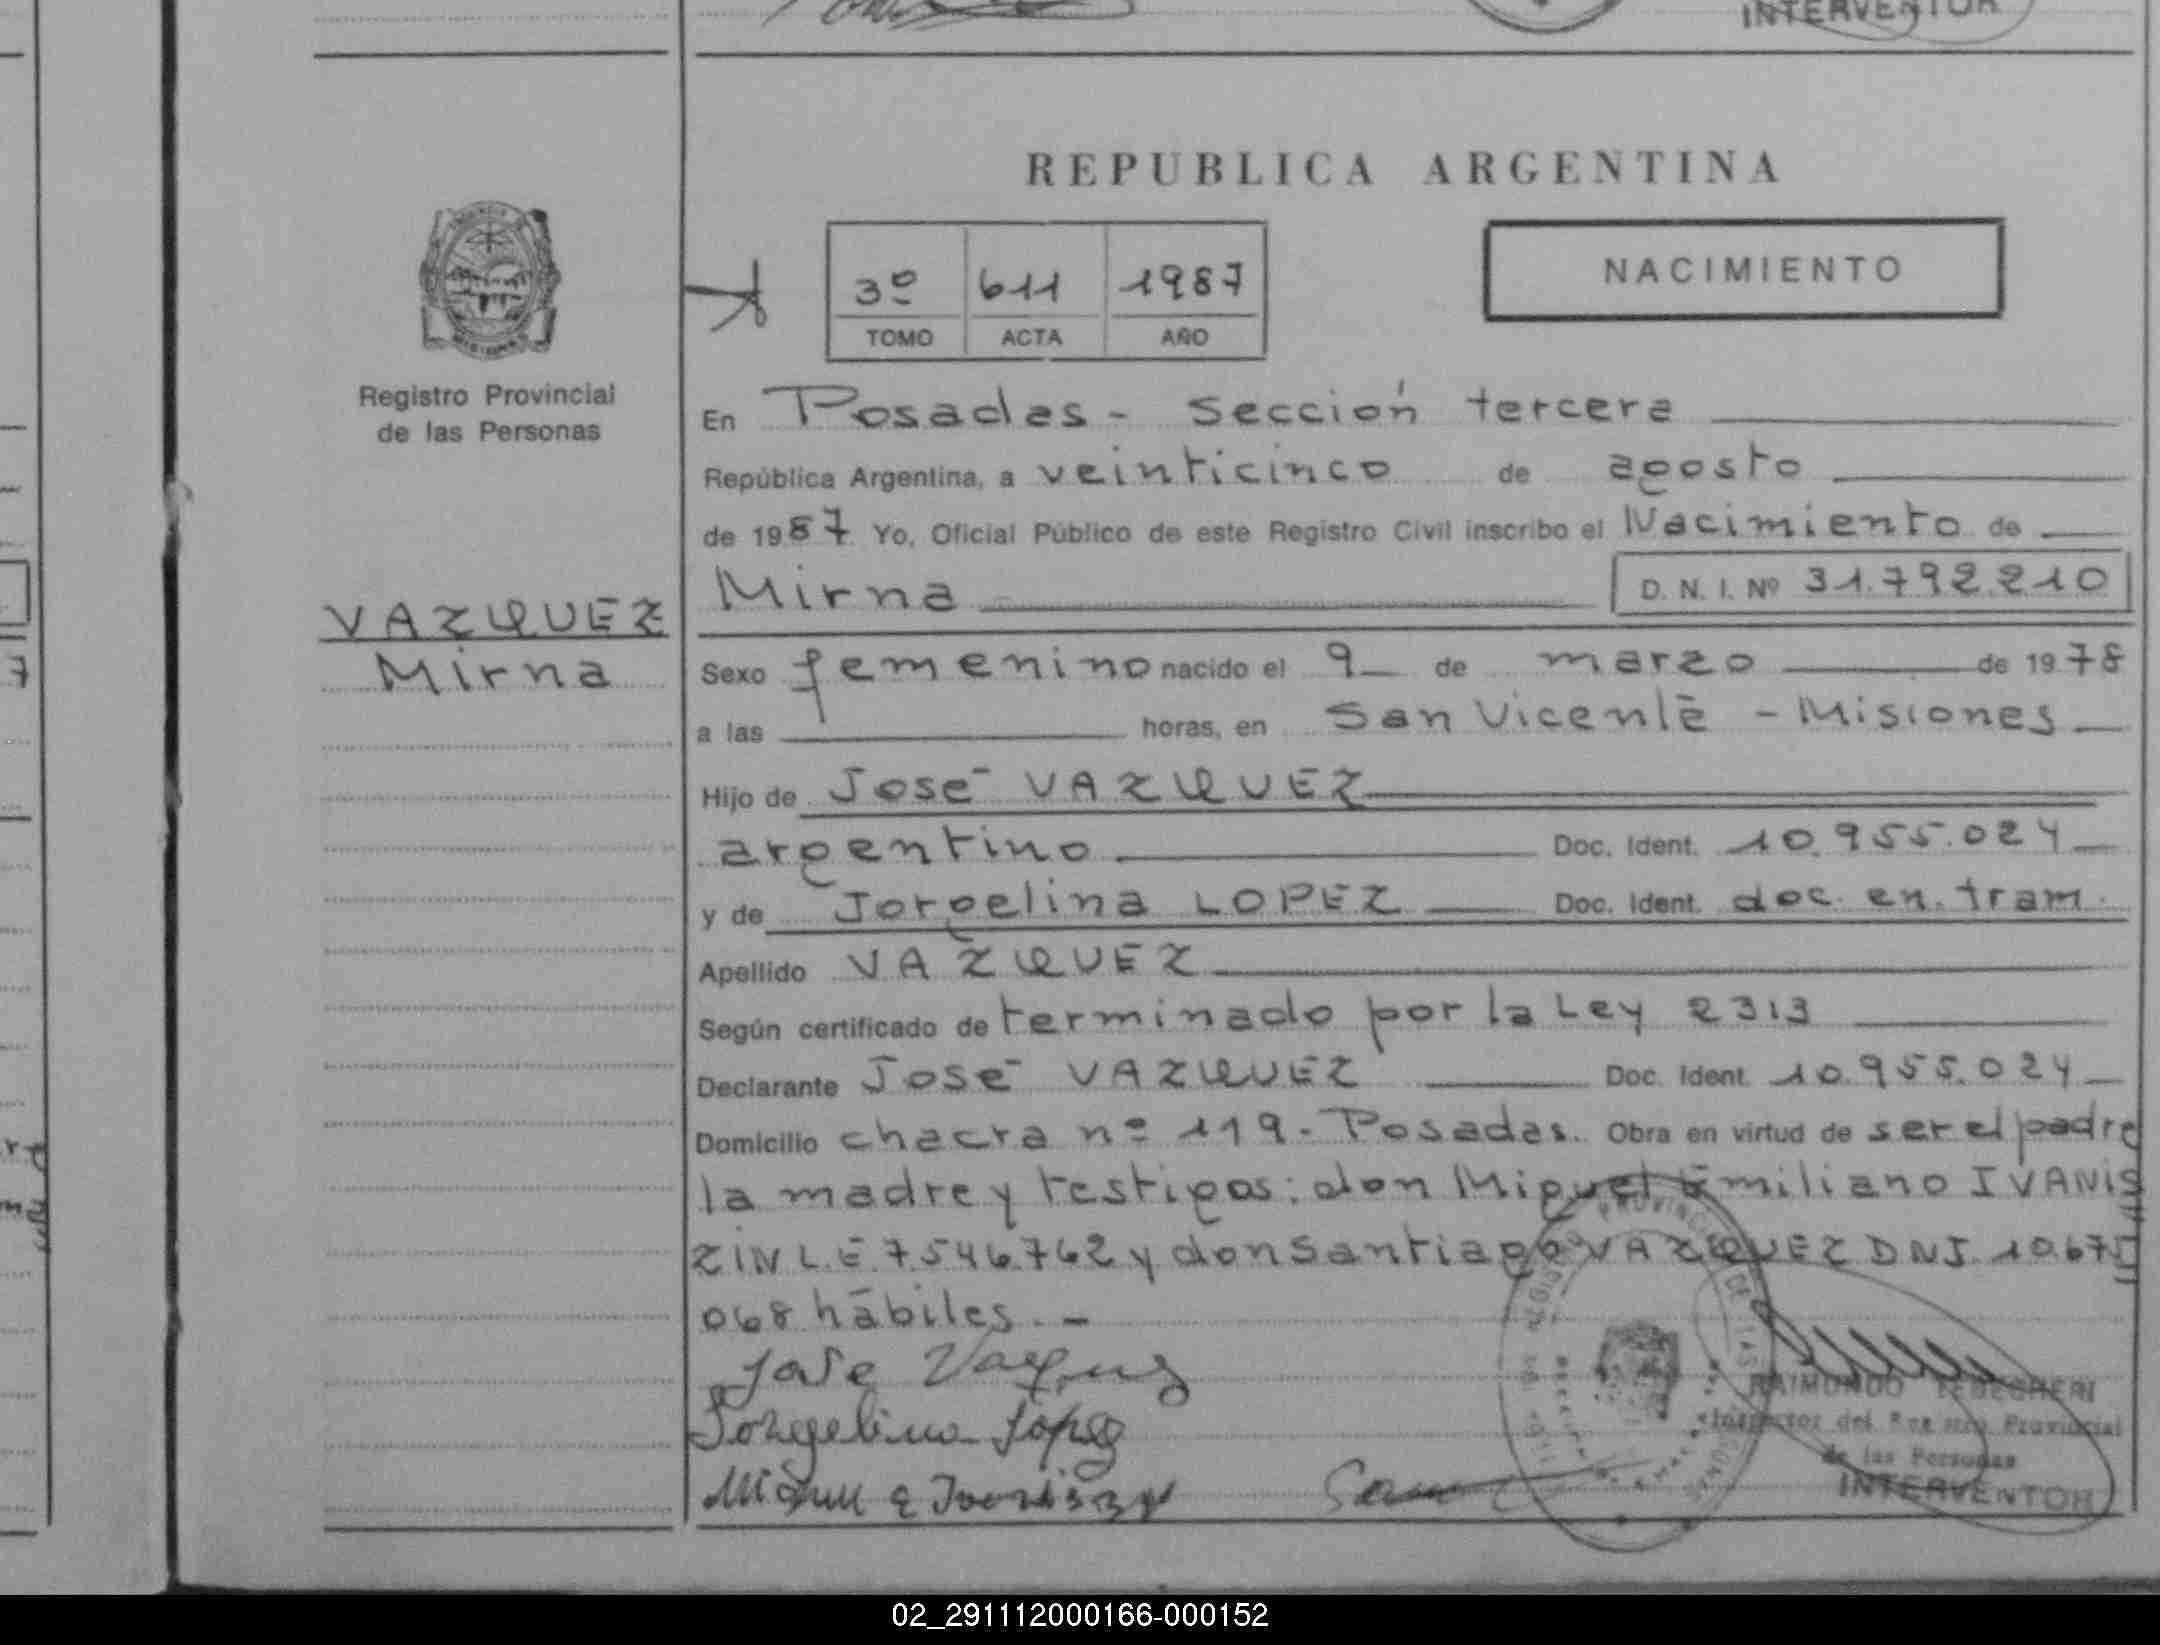 INTERVENTOR
REPUBLICA ARGENTINA
3º 611 1987
TOMO ACTA AÑO
NACIMIENTO
Registro Provincial
de las Personas
VAZQUEZ
Mirna
En Posadas - Sección tercera
República Argentina, a veinticinco de agosto
de 1987 Yo, Oficial Público de este Registro Civil inscribo el Nacimiento de
Mirna D. N. I. Nº 31.792.210
Sexo femenino nacido el 9 de marzo de 1978
a las horas, en San Vicente - Misiones
Hijo de José VAZQUEZ
argentino Doc. Ident. 10.955.024
y de Jorgelina LOPEZ Doc. Ident. doc. en. tram.
Apellido VAZQUEZ
Según certificado de terminado por la Ley 2313
Declarante José VAZQUEZ Doc. Ident. 10.955.024
Domicilio chacra nº 119 - Posadas. Obra en virtud de ser el padre
la madre y testigos: don Miguel Emiliano IVANIS
ZIN L.E 7.546.762 y don Santiago VAZQUEZ DNI. 10.675
068 hábiles. -
Jose Vazquez
Jorgelina Lopez
RAIMUNDO
Inspector del Registro Provincial
de las Personas
INTERVENTOR
02_291112000166-000152